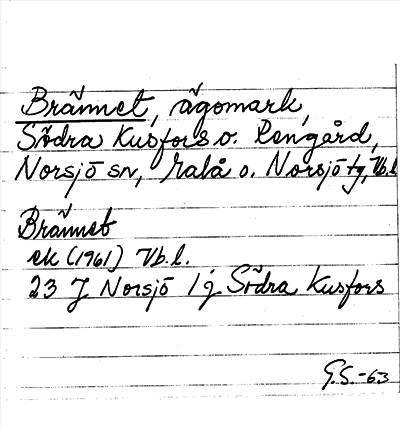 Brännet, ägomark,
Södra Kusfors o. Rengård,
Norsjö sn, Malå o. Norsjö tg, Vb.l
Brännet
ek (1961) Vb.l.
23 J Norsjö 1 j Södra Kusfors
G.S.-63